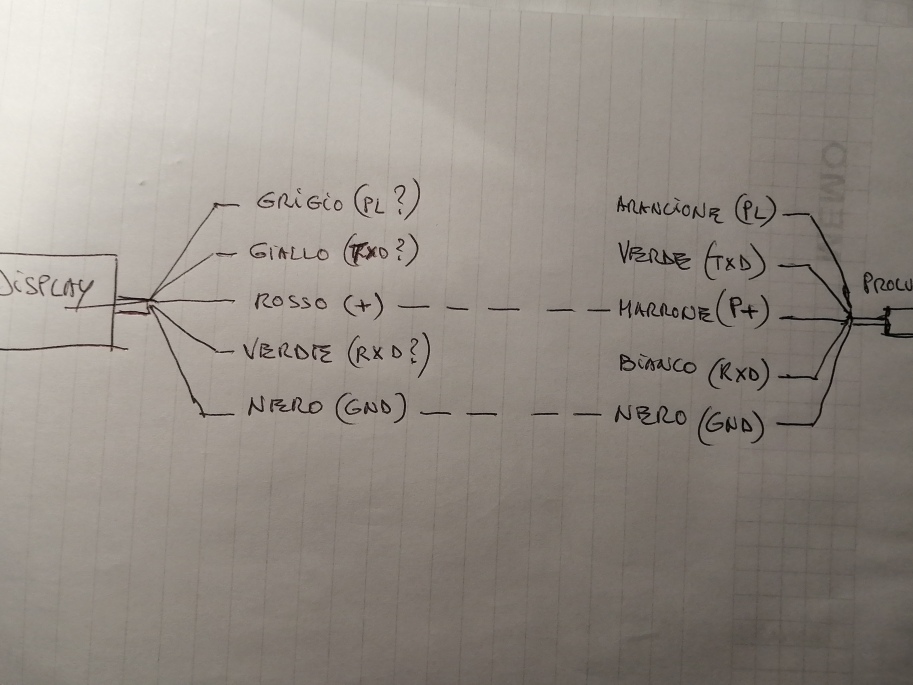 GRIGIO (PL?)
ARANCIONE (PL)
GIALLO (TXD?)
VERDE (TXD)
DISPLAY
PROLU
ROSSO (+)
MARRONE (P+)
VERDE (RXD?)
BIANCO (RXD)
NERO (GND)
NERO (GND)